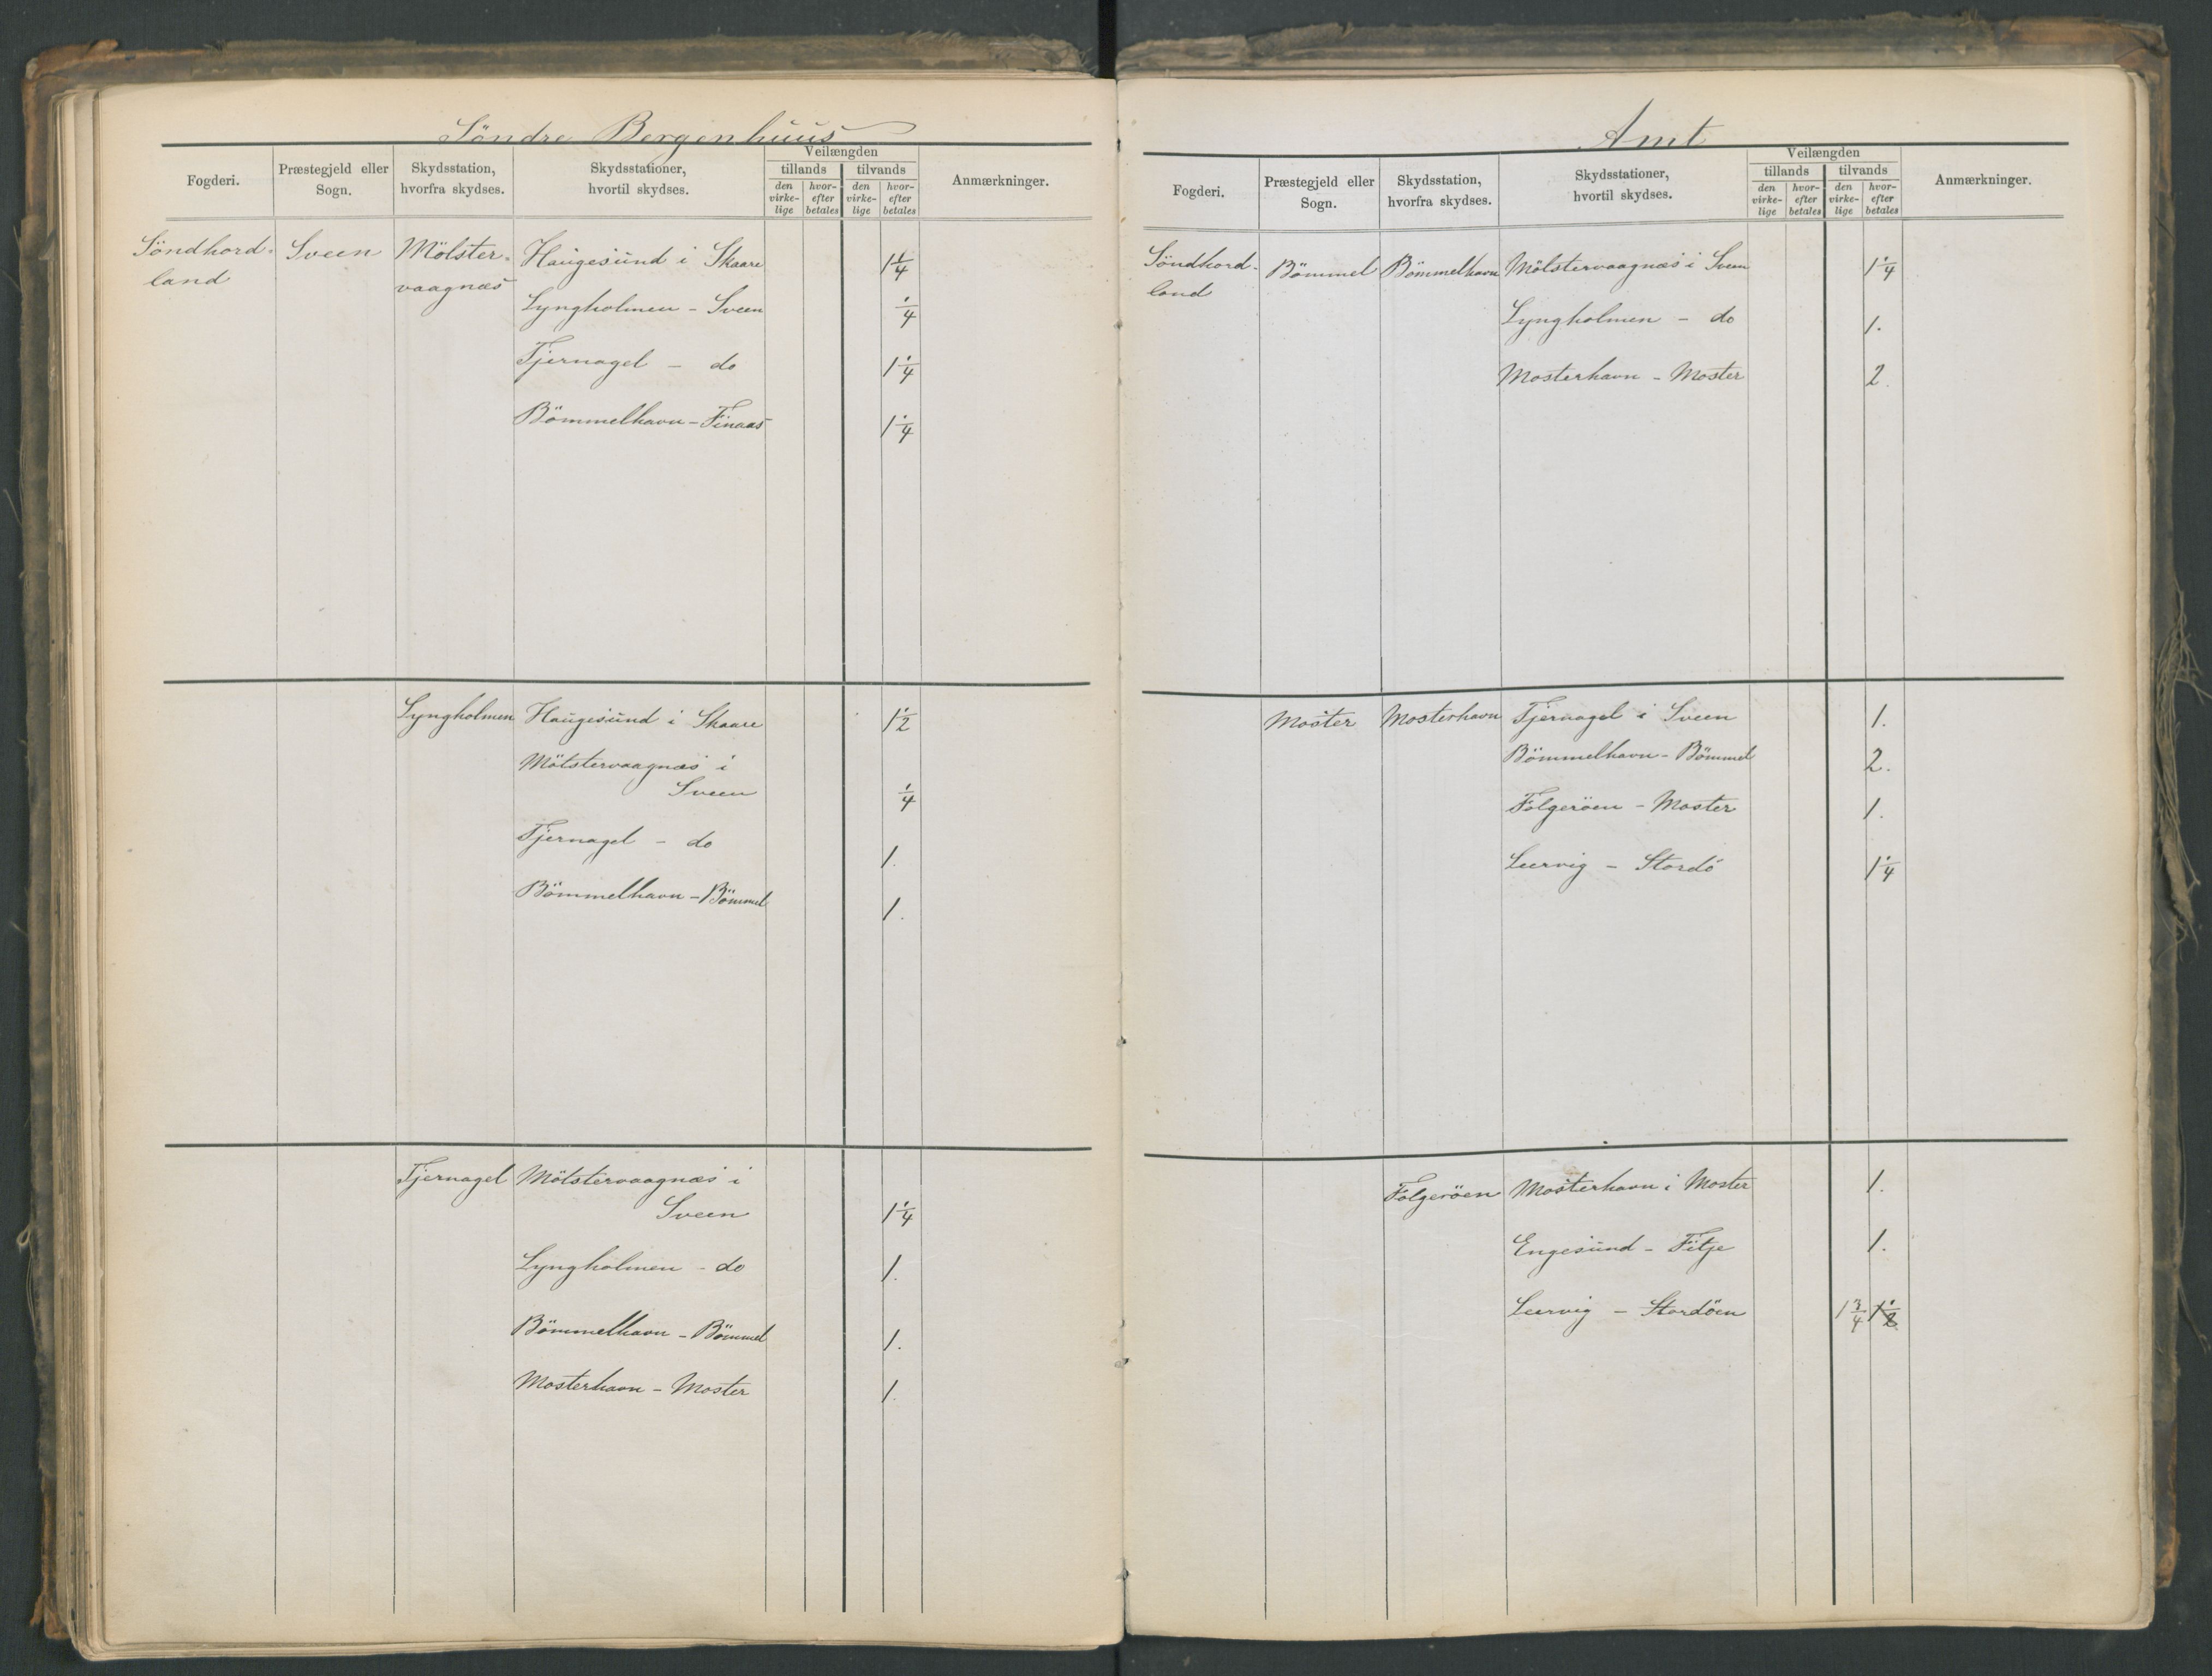 Söndre Bergenhuus
Fogderi.
Præstegjeld eller
Sogn.
Skydsstation,
hvorfra skydses.
Skydsstationer,
hvortil skydses.
Veilængden
tillands
tilvands
den virke-lige
hvor-efter betales
den virke-lige
hvor-efter betales
Anmærkninger.
Söndhord- Sveen Mölster- Haugesund i Skaare 1 1/4
land vaagnæs
Lyngholmen - Sveen 1/4
Tjernagel - do 1 1/4
Bömmelhavn - Finaas 1 1/4
Lyngholmen Haugesund i Skaare 1 1/2
Mölstervaagnæs i
Sveen 1/4
Tjernagel - do 1.
Bömmelhavn - Bömmel 1.
Tjernagel Mölstervaagnæs i
Sveen 1 1/4
Lyngholmen - do 1.
Bömmelhavn - Bömmel 1.
Mosterhavn - Moster 1.
Amt
Fogderi.
Præstegjeld eller
Sogn.
Skydsstation,
hvorfra skydses.
Skydsstationer,
hvortil skydses.
Veilængden
tillands
tilvands
den virke-lige
hvor-efter betales
den virke-lige
hvor-efter betales
Anmærkninger.
Söndhord- Bömmel Bömmelhavn Mölstervaagnæs i Sveen 1 1/4
land
Lyngholmen - do 1.
Mosterhavn - Moster 2.
Moster Mosterhavn Tjernagel i Sveen 1.
Bömmelhavn - Bömmel 2.
Folgeröen - Moster 1.
Leervig - Stordö 1 1/4
Folgeröen Mosterhavn i Moster 1.
Engesund - Fitje 1.
Leervig - Stordöen 1 3/4 1 1/2